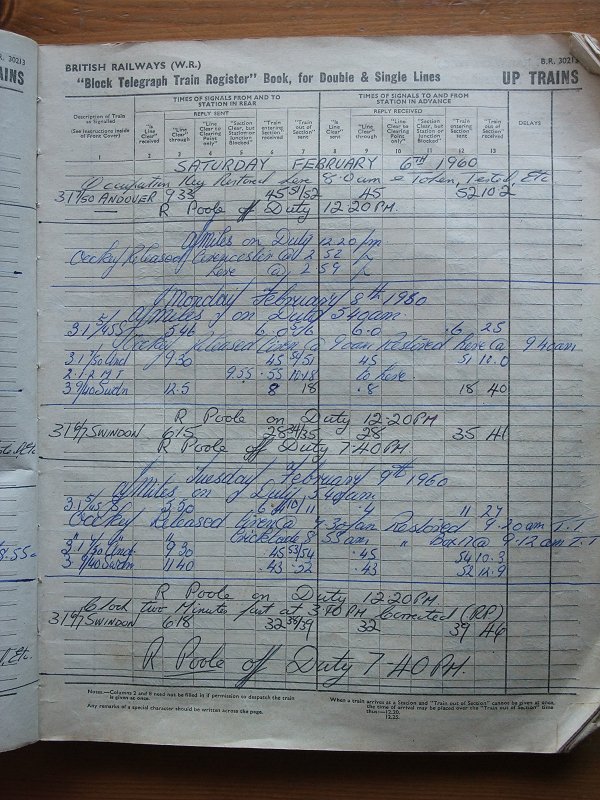 B.R. 30213
AINS
BRITISH RAILWAYS (W.R.)
B.R. 30213
"Block Telegraph Train Register" Book, for Double & Single Lines
UP TRAINS
TIMES OF SIGNALS FROM AND TO STATION IN REAR
TIMES OF SIGNALS TO AND FROM STATION IN ADVANCE
DELAYS
REPLY SENT
REPLY RECEIVED
Description of Train as Signalled
(See instructions inside of Front Cover)
"Is Line Clear" received
"Line Clear" through
"Line Clear to Clearing Point only"
"Section Clear, but Station or Junction Blocked"
"Train entering Section" received
"Train out of Section"
"Is Line Clear" sent
"Line Clear" through
"Line Clear to Clearing Point only"
"Section Clear but Station or Junction Blocked"
"Train entering Section" sent
"Train out of Section" received
1 2 3 4 5 6 7 8 9 10 11 12 13
SATURDAY FEBRUARY 6TH 1960
Occupation Key Restored here 8.0 am Token, Tested, Etc
ANDOVER 9 33 45 51/52 45 52 10 2
R Poole off Duty 12.20 PM.
Miles on Duty 12.20 pm
Released Cirencester 2 52 p
here @ 2 59 p
Monday February 8th 1960
Miles on Duty 5 40am
5 46 6.0 6.0 .6 25
Released Ciren @ Restored here @ 9 40am
9.30 45 51/51 45 51 10.0
9 55 .55 10.18 to here
3 9/40 Swdn 12.5 8 18 .8 18 40
R Poole on Duty 12.20PM
SWINDON 6 15 28 34/35 28 35 41
R Poole off Duty 7.40PM
Tuesday February 9th 1960
Miles on Duty 5 40am
5 50 .4 11 27
Released Ciren @ Restored 9.20am T.T
" " Cricklade 8 55am " 9.12am T.T
9 30 45 53/54 .45 54 10.3
3 9/40 Swdn 11 40 .43 .52 .43 52 12.9
R Poole on Duty 12.20PM
Clock two Minutes fast at 3 40 PM Corrected (RP)
SWINDON 6 18 32 38/39 32 39 46
R Poole off Duty 7.40PM.
Notes.—Columns 2 and 8 need not be filled in if permission to despatch the train is given at once.
Any remarks of a special character should be written across the page.
When a train arrives at a Station and "Train out of Section" cannot be given at once, the time of arrival may be placed over the "Train out of Section" time thus—12.20.
12.25.